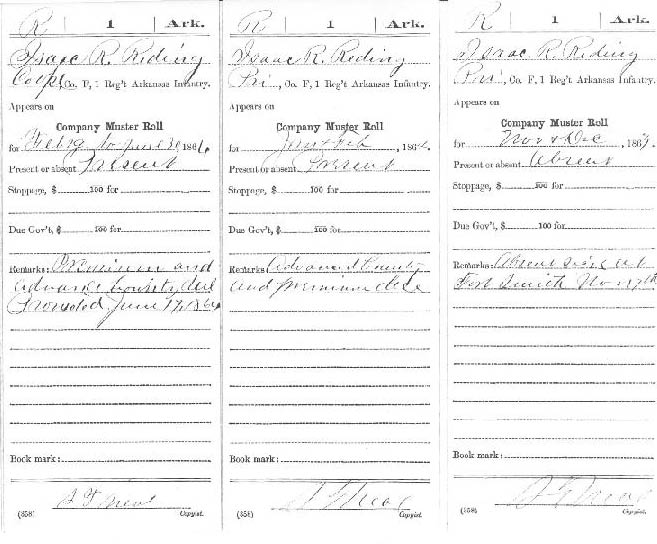 R | 1 | Ark.
Isaac R. Riding
Corpl, Co. F, 1 Reg't Arkansas Infantry.
Appears on
Company Muster Roll
for Feb 29 to June 30, 1864
Present or absent Present
Stoppage, $ 100 for
Due Gov't, $ 100 for
Remarks: Premium and
advance bounty due
Promoted June 17, 1864
Book mark:
(358) Copyist.
R | 1 | Ark.
Isaac R. Riding
Pri, Co. F, 1 Reg't Arkansas Infantry.
Appears on
Company Muster Roll
for Jan & Feb, 1864.
Present or absent Present
Stoppage, $ 100 for
Due Gov't, $ 100 for
Remarks: Advance Bounty
and premium due
Book mark:
(358) Copyist.
R | 1 | Ark.
Isaac R. Riding
Pri, Co. F, 1 Reg't Arkansas Infantry.
Appears on
Company Muster Roll
for Nov & Dec, 1863.
Present or absent Absent
Stoppage, $ 100 for
Due Gov't, $ 100 for
Remarks: Absent sick at
Fort Smith Nov 17th
Book mark:
(358) Copyist.